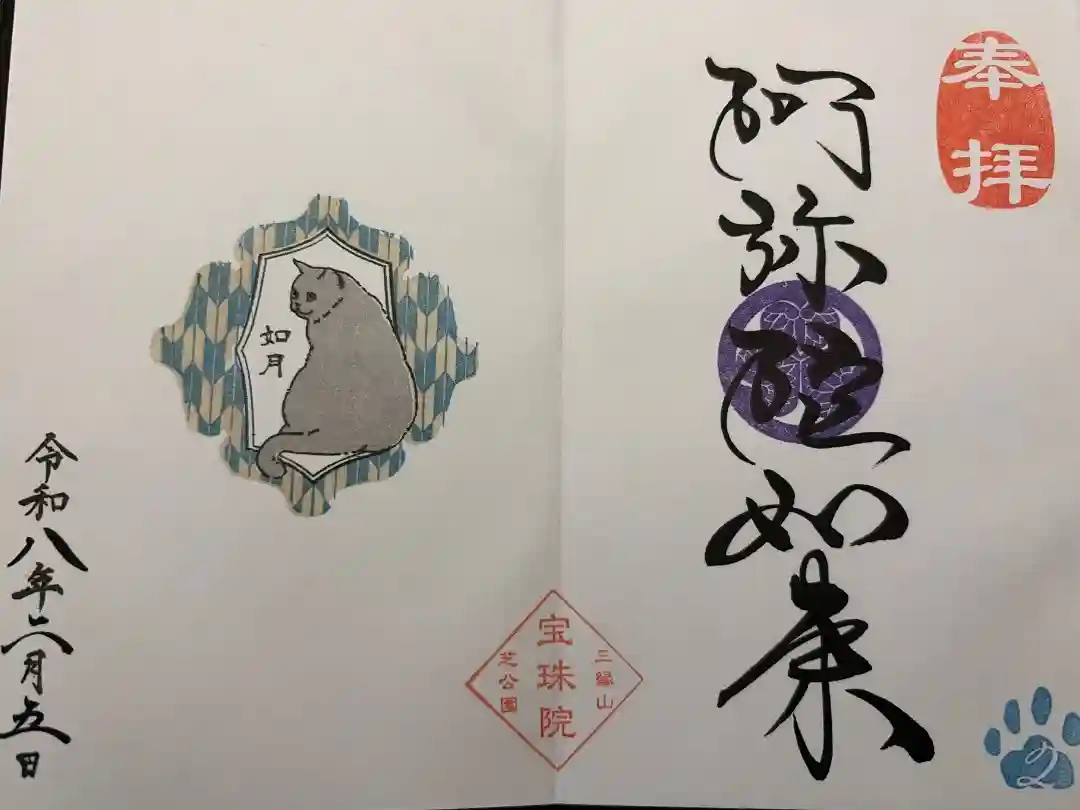 奉拝
阿弥陀如来
2
三縁山
宝珠院
芝公園
如月
令和八年六月五日